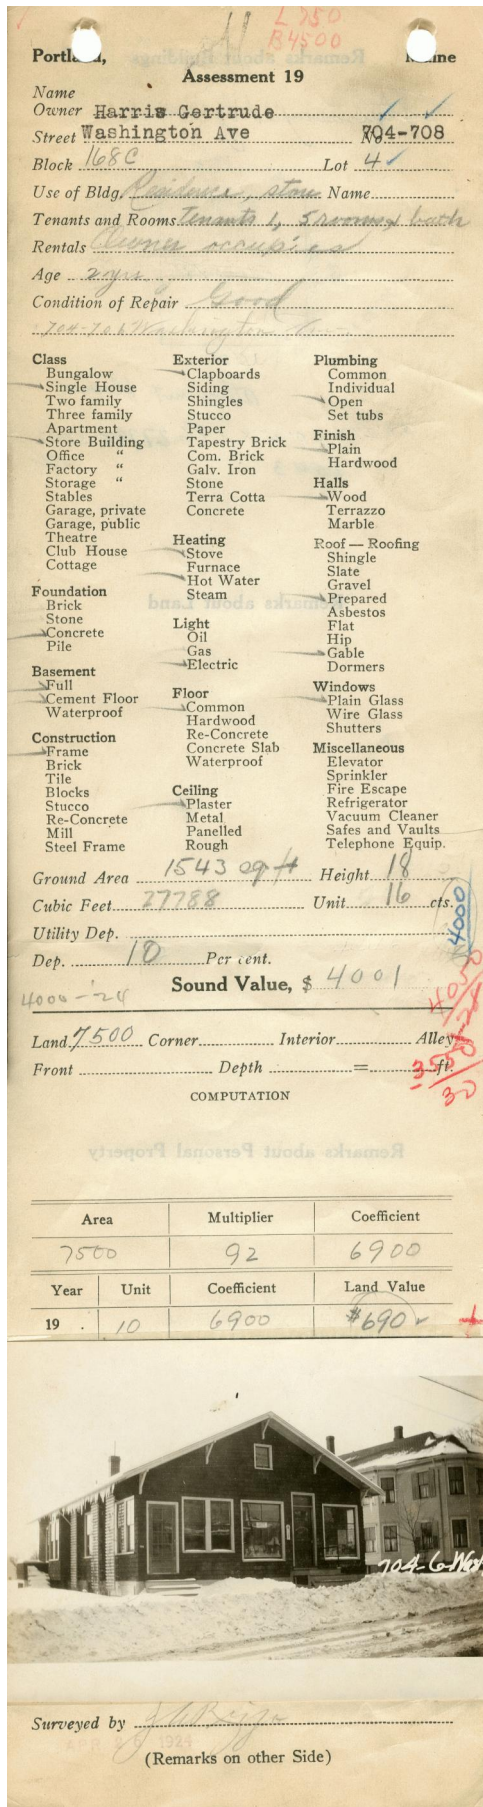 L 750
B 4500
Portland, Maine
Assessment 19
Name
Owner Harris Gertrude
Street Washington Ave No 704-708
Block 168C Lot 4
Use of Bldg. Residence, store Name
Tenants and Rooms Tenants 1, 5 rooms & bath
Rentals Owner occupies
Age 2 yrs
Condition of Repair Good
704-706 Washington Ave
Class
Bungalow
Single House
Two family
Three family
Apartment
Store Building
Office "
Factory "
Storage "
Stables
Garage, private
Garage, public
Theatre
Club House
Cottage
Foundation
Brick
Stone
Concrete
Pile
Basement
Full
Cement Floor
Waterproof
Construction
Frame
Brick
Tile
Blocks
Stucco
Re-Concrete
Mill
Steel Frame
Exterior
Clapboards
Siding
Shingles
Stucco
Paper
Tapestry Brick
Com. Brick
Galv. Iron
Stone
Terra Cotta
Concrete
Heating
Stove
Furnace
Hot Water
Steam
Light
Oil
Gas
Electric
Floor
Common
Hardwood
Re-Concrete
Concrete Slab
Waterproof
Ceiling
Plaster
Metal
Panelled
Rough
Plumbing
Common
Individual
Open
Set tubs
Finish
Plain
Hardwood
Halls
Wood
Terrazzo
Marble
Roof — Roofing
Shingle
Slate
Gravel
Prepared
Asbestos
Flat
Hip
Gable
Dormers
Windows
Plain Glass
Wire Glass
Shutters
Miscellaneous
Elevator
Sprinkler
Fire Escape
Refrigerator
Vacuum Cleaner
Safes and Vaults
Telephone Equip.
Ground Area 1543 sq ft Height 18
Cubic Feet 27788 Unit 16 cts.
4000
Utility Dep.
Dep. 10 Per cent.
Sound Value, $ 4001
4000 - '24
4050
Land 7500 Corner Interior Alley
Front Depth = ft.
30
COMPUTATION
Area Multiplier Coefficient
7500 92 6900
Year Unit Coefficient Land Value
19 . 10 6900 $690
704-6 Was
Surveyed by
1924
(Remarks on other Side)